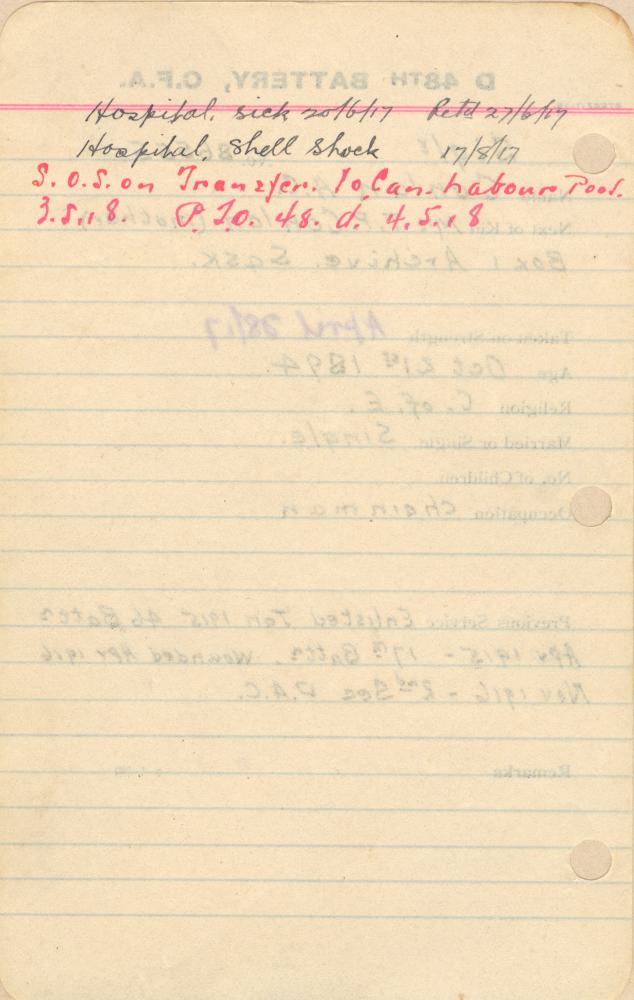 Hospital, sick 20/6/17 Ret'd 27/6/17
Hospital, Shell Shock 17/8/17
S.O.S. on Transfer. To Can. Labour Pool.
3.5.18. P.2.O. 48. d. 4.5.18
D 48TH BATTERY, C.F.A.
Name
Next of Kin
Box 1 Archive. Sask.
Taken on Strength April 28/17
Age Oct 21st 1894.
Religion C. of. E.
Married or Single Single.
No. of Children
Occupation Chainman
Previous Service Enlisted Jan 1915 46 Batn
Apr 1915 - 17th Battn. Wounded Apr 1916
Nov 1916 - 2nd Sec D.A.C.
Remarks